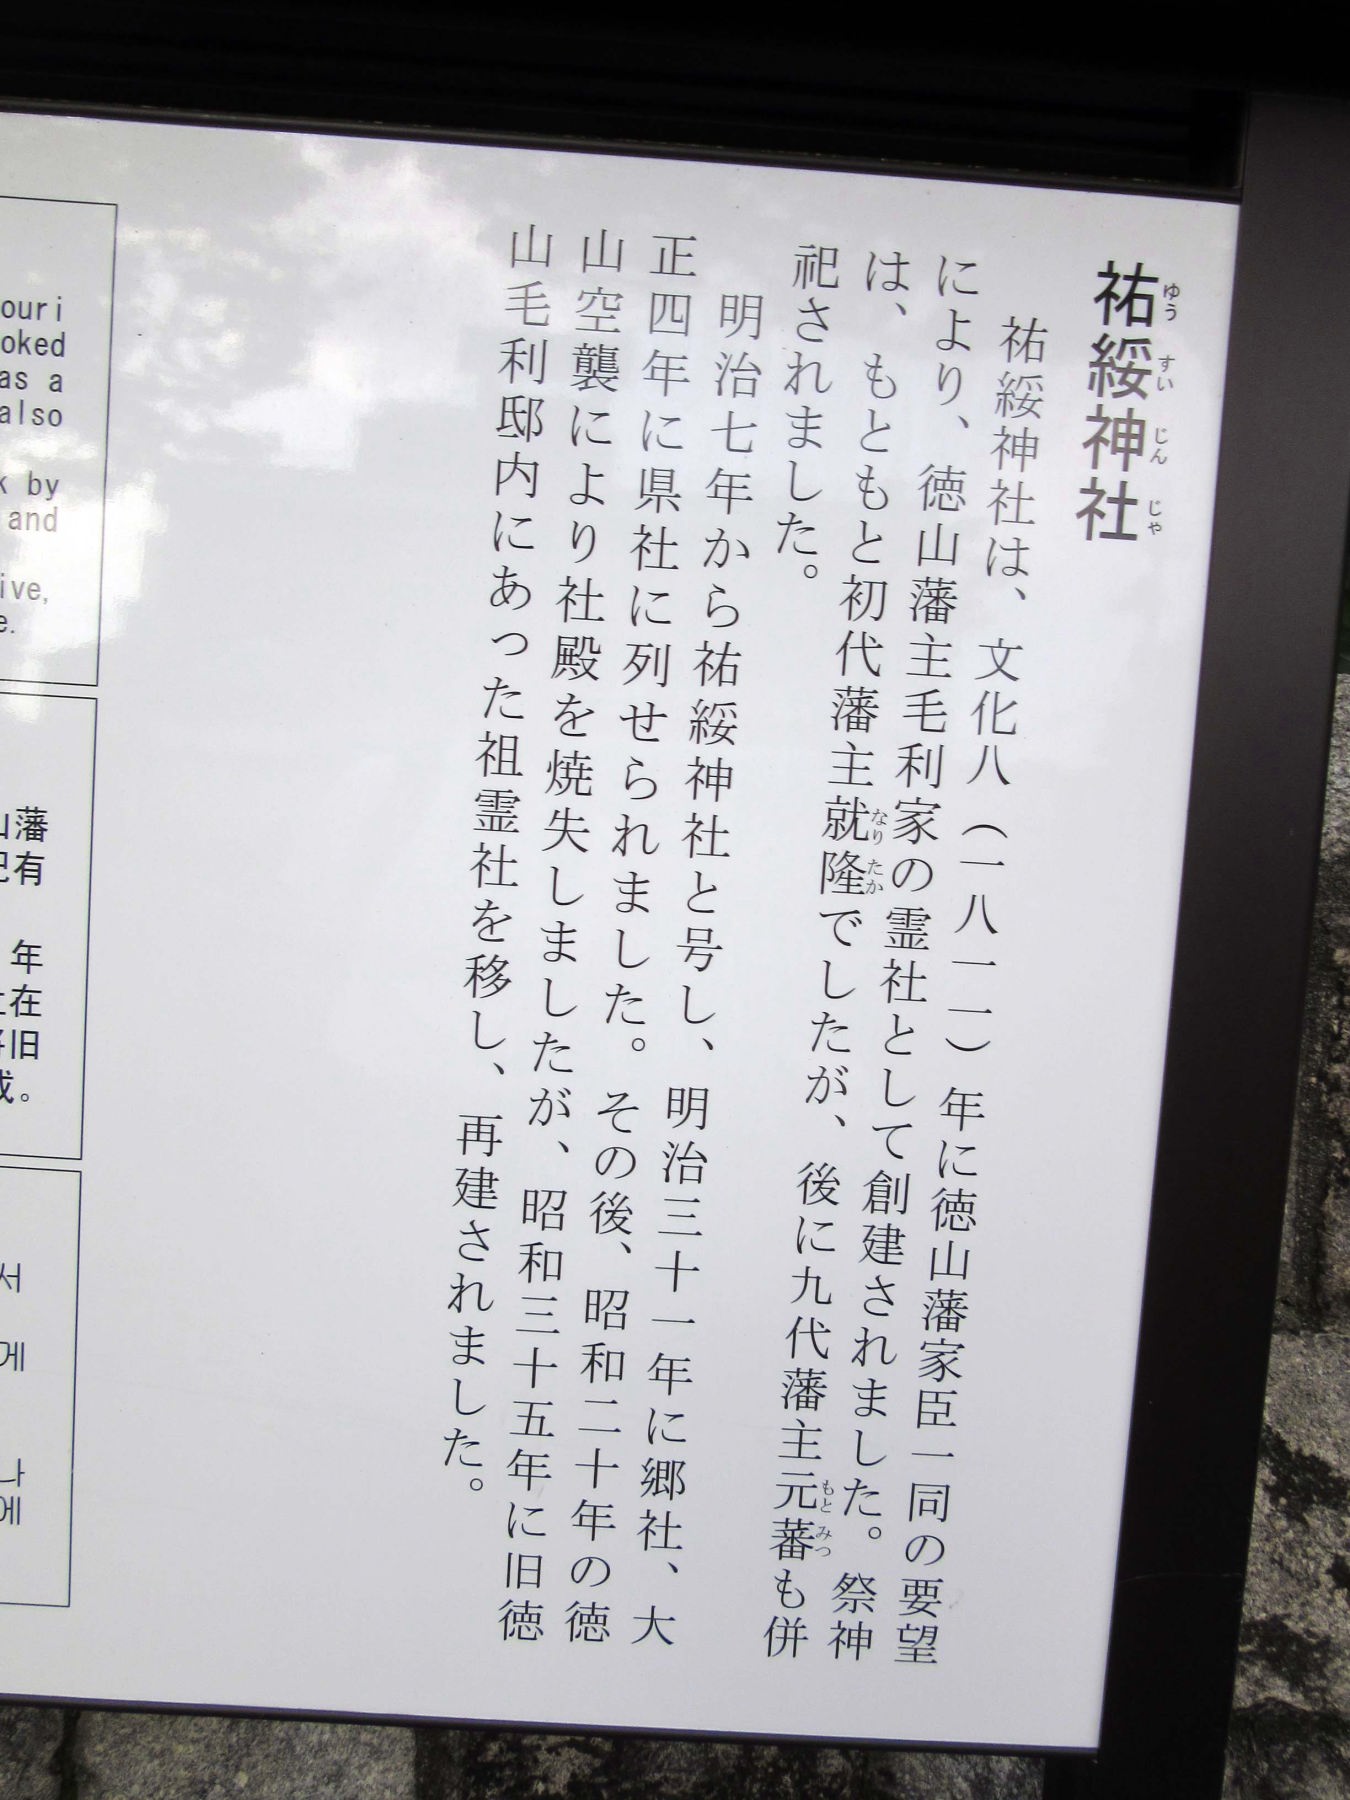 祐綏神社
ゆうすいじんじゃ
祐綏神社は、文化八（一八一一）年に徳山藩家臣一同の要望
により、徳山藩主毛利家の霊社として創建されました。祭神
は、もともと初代藩主就隆でしたが、後に九代藩主元蕃も併
なりたか
もとみつ
祀されました。
明治七年から祐綏神社と号し、明治三十一年に郷社、大
正四年に県社に列せられました。その後、昭和二十年の徳
山空襲により社殿を焼失しましたが、昭和三十五年に旧徳
山毛利邸内にあった祖霊社を移し、再建されました。
ouri
oked
as a
also
k by
and
ive,
e.
山藩
祀有
年
社在
将旧
成。
서
게
나
에